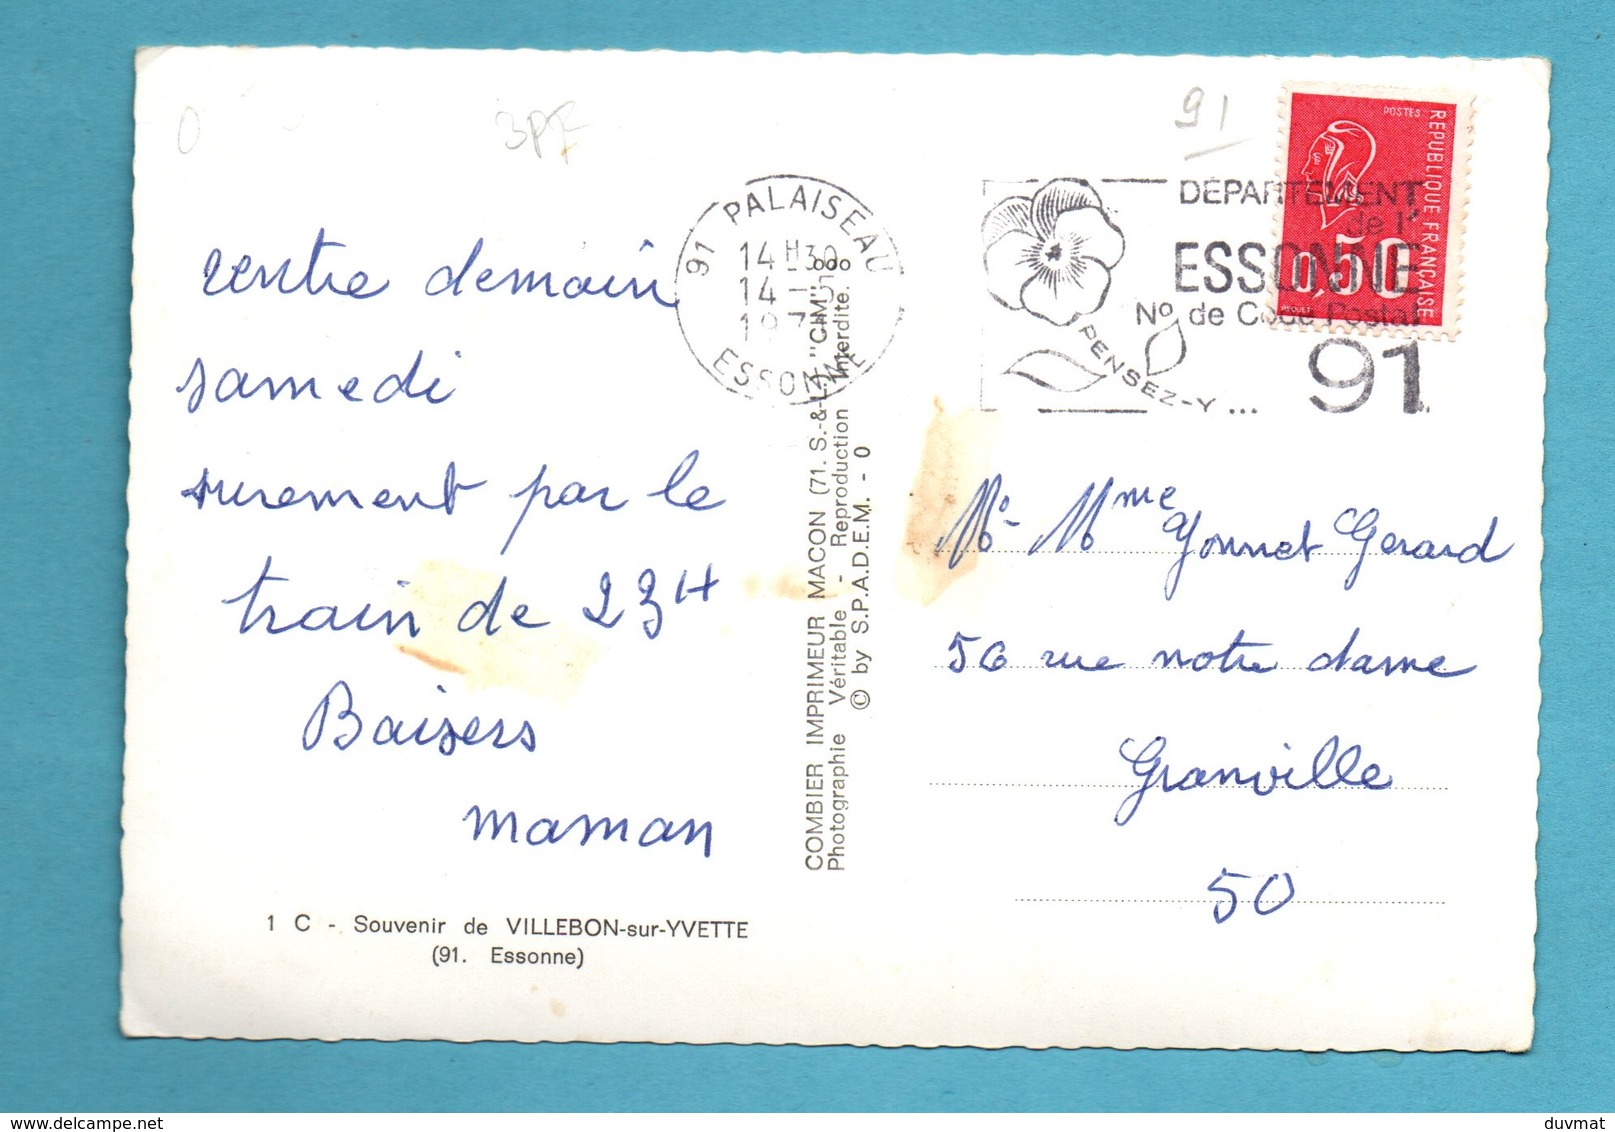 0
3PF
91
rentre demain
samedi
surement par le
train de 23H
Baisers
maman
1 C - Souvenir de VILLEBON-sur-YVETTE
(91. Essonne)
COMBIER IMPRIMEUR MACON (71. S.-&-L.) "CIM"
Photographie Véritable - Reproduction Interdite.
© by S.P.A.D.E.M. - 0
91 PALAISEAU
14H30
14 -
ESSONNE
DÉPARTEMENT
de l'
ESSONNE
No de Code Postal
91
PENSEZ-Y...
POSTES
REPUBLIQUE FRANÇAISE
0,50
Mr Mme Yonnet Gerard
56 rue notre dame
Granville
50
delcampe.net
duvmat